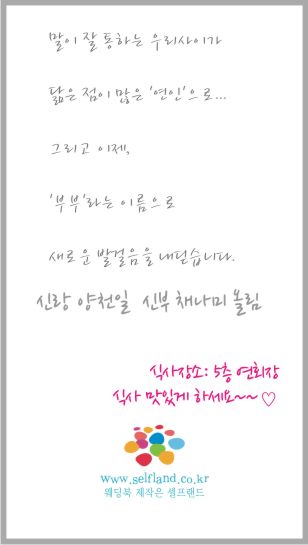 말이 잘 통하는 우리사이가
닮은 점이 많은 '연인'으로...
그리고 이제,
'부부'라는 이름으로
새로운 발걸음을 내딛습니다.
신랑 양천일 신부 채나미 올림
식사장소: 5층 연회장
식사 맛있게 하세요~~♡
www.selfland.co.kr
웨딩북 제작은 셀프랜드